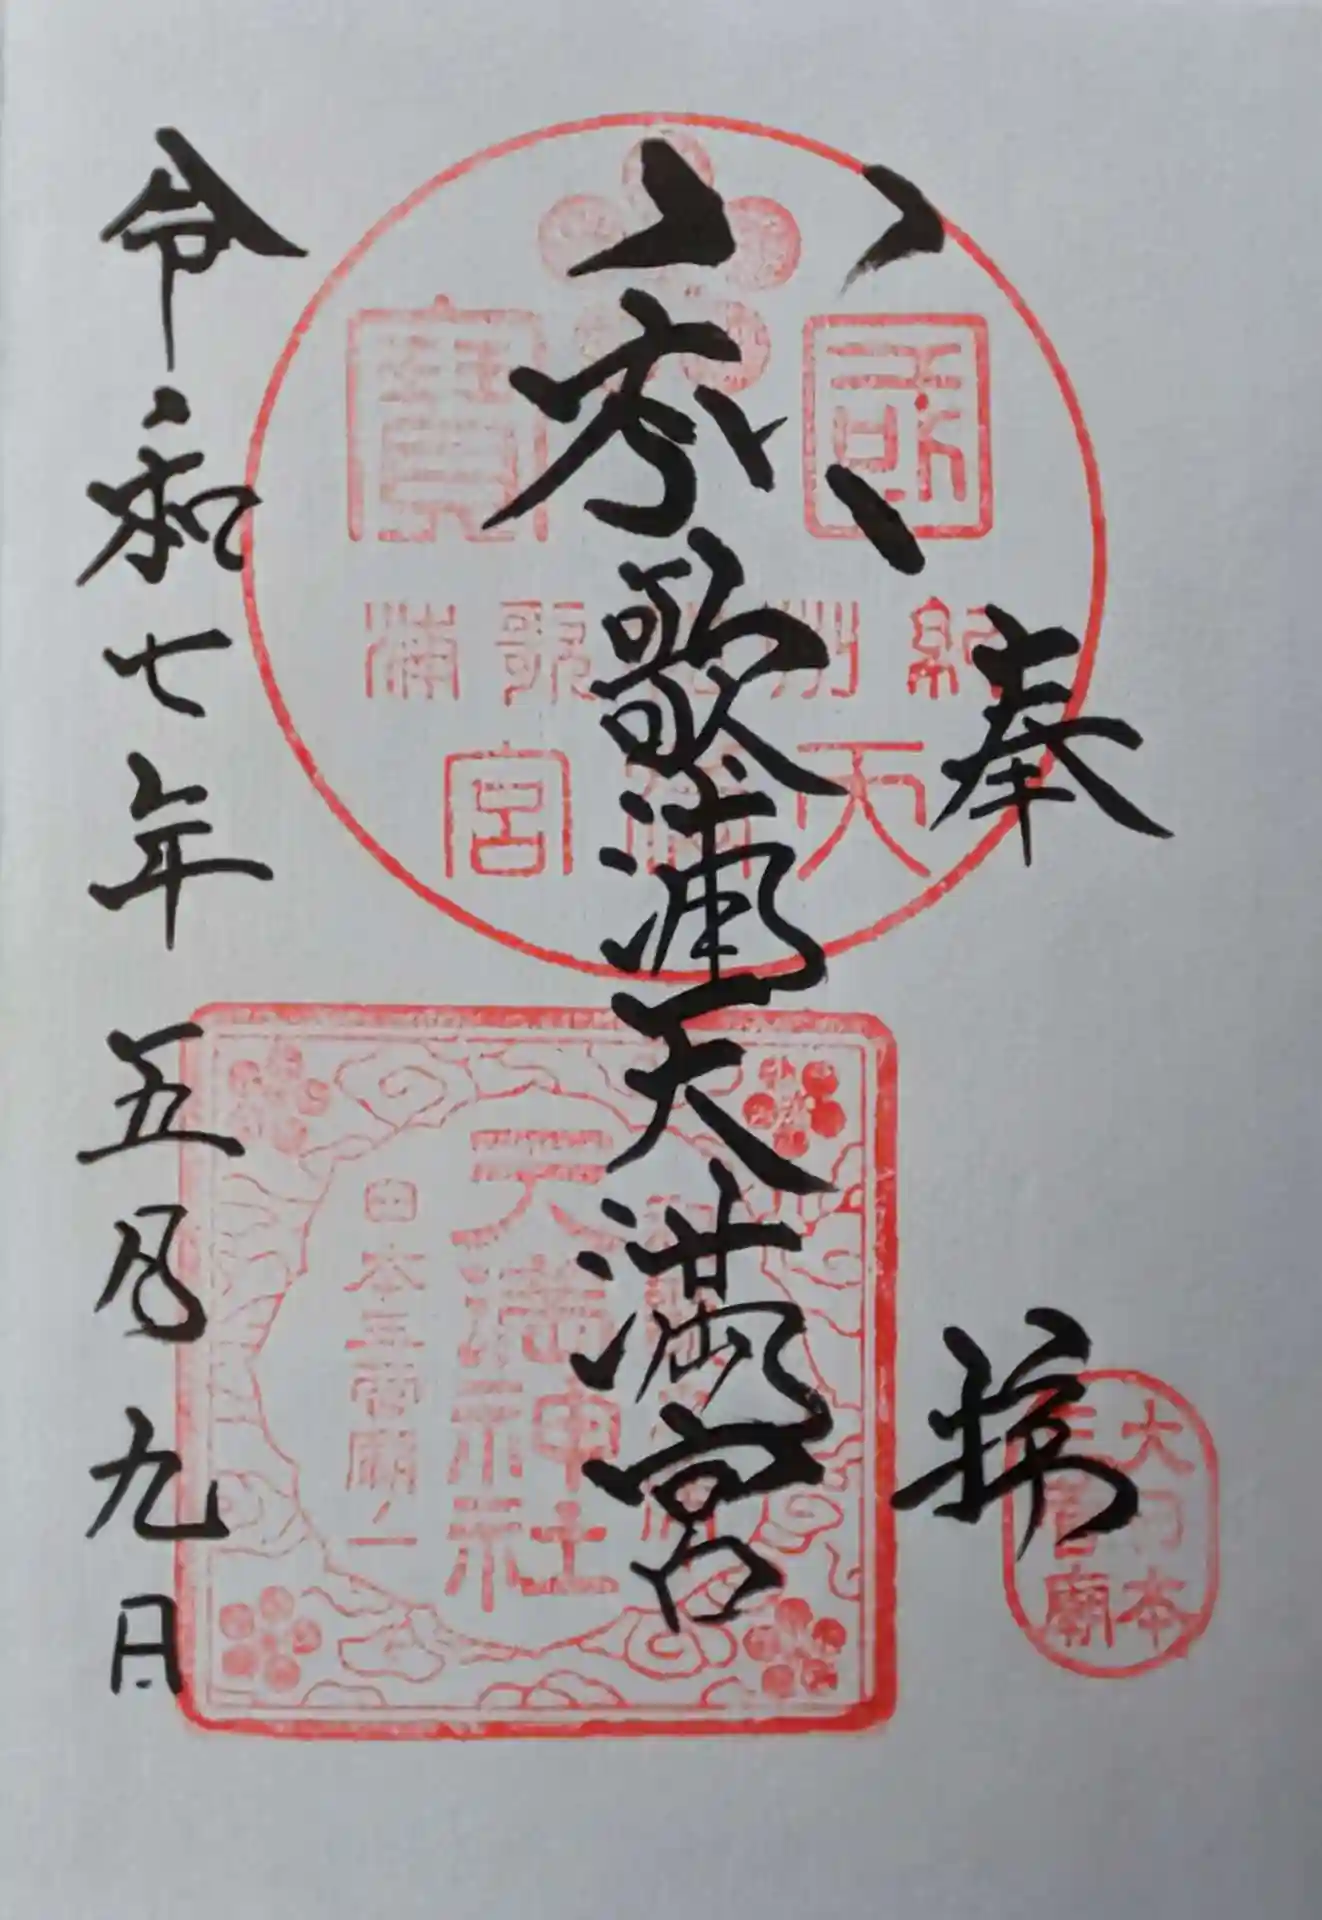 奉拝
和歌浦天満宮
令和七年五月九日
國寶
紀州和歌浦
天満宮
天満神社
日本三菅廟ノ一
大日本
三菅廟